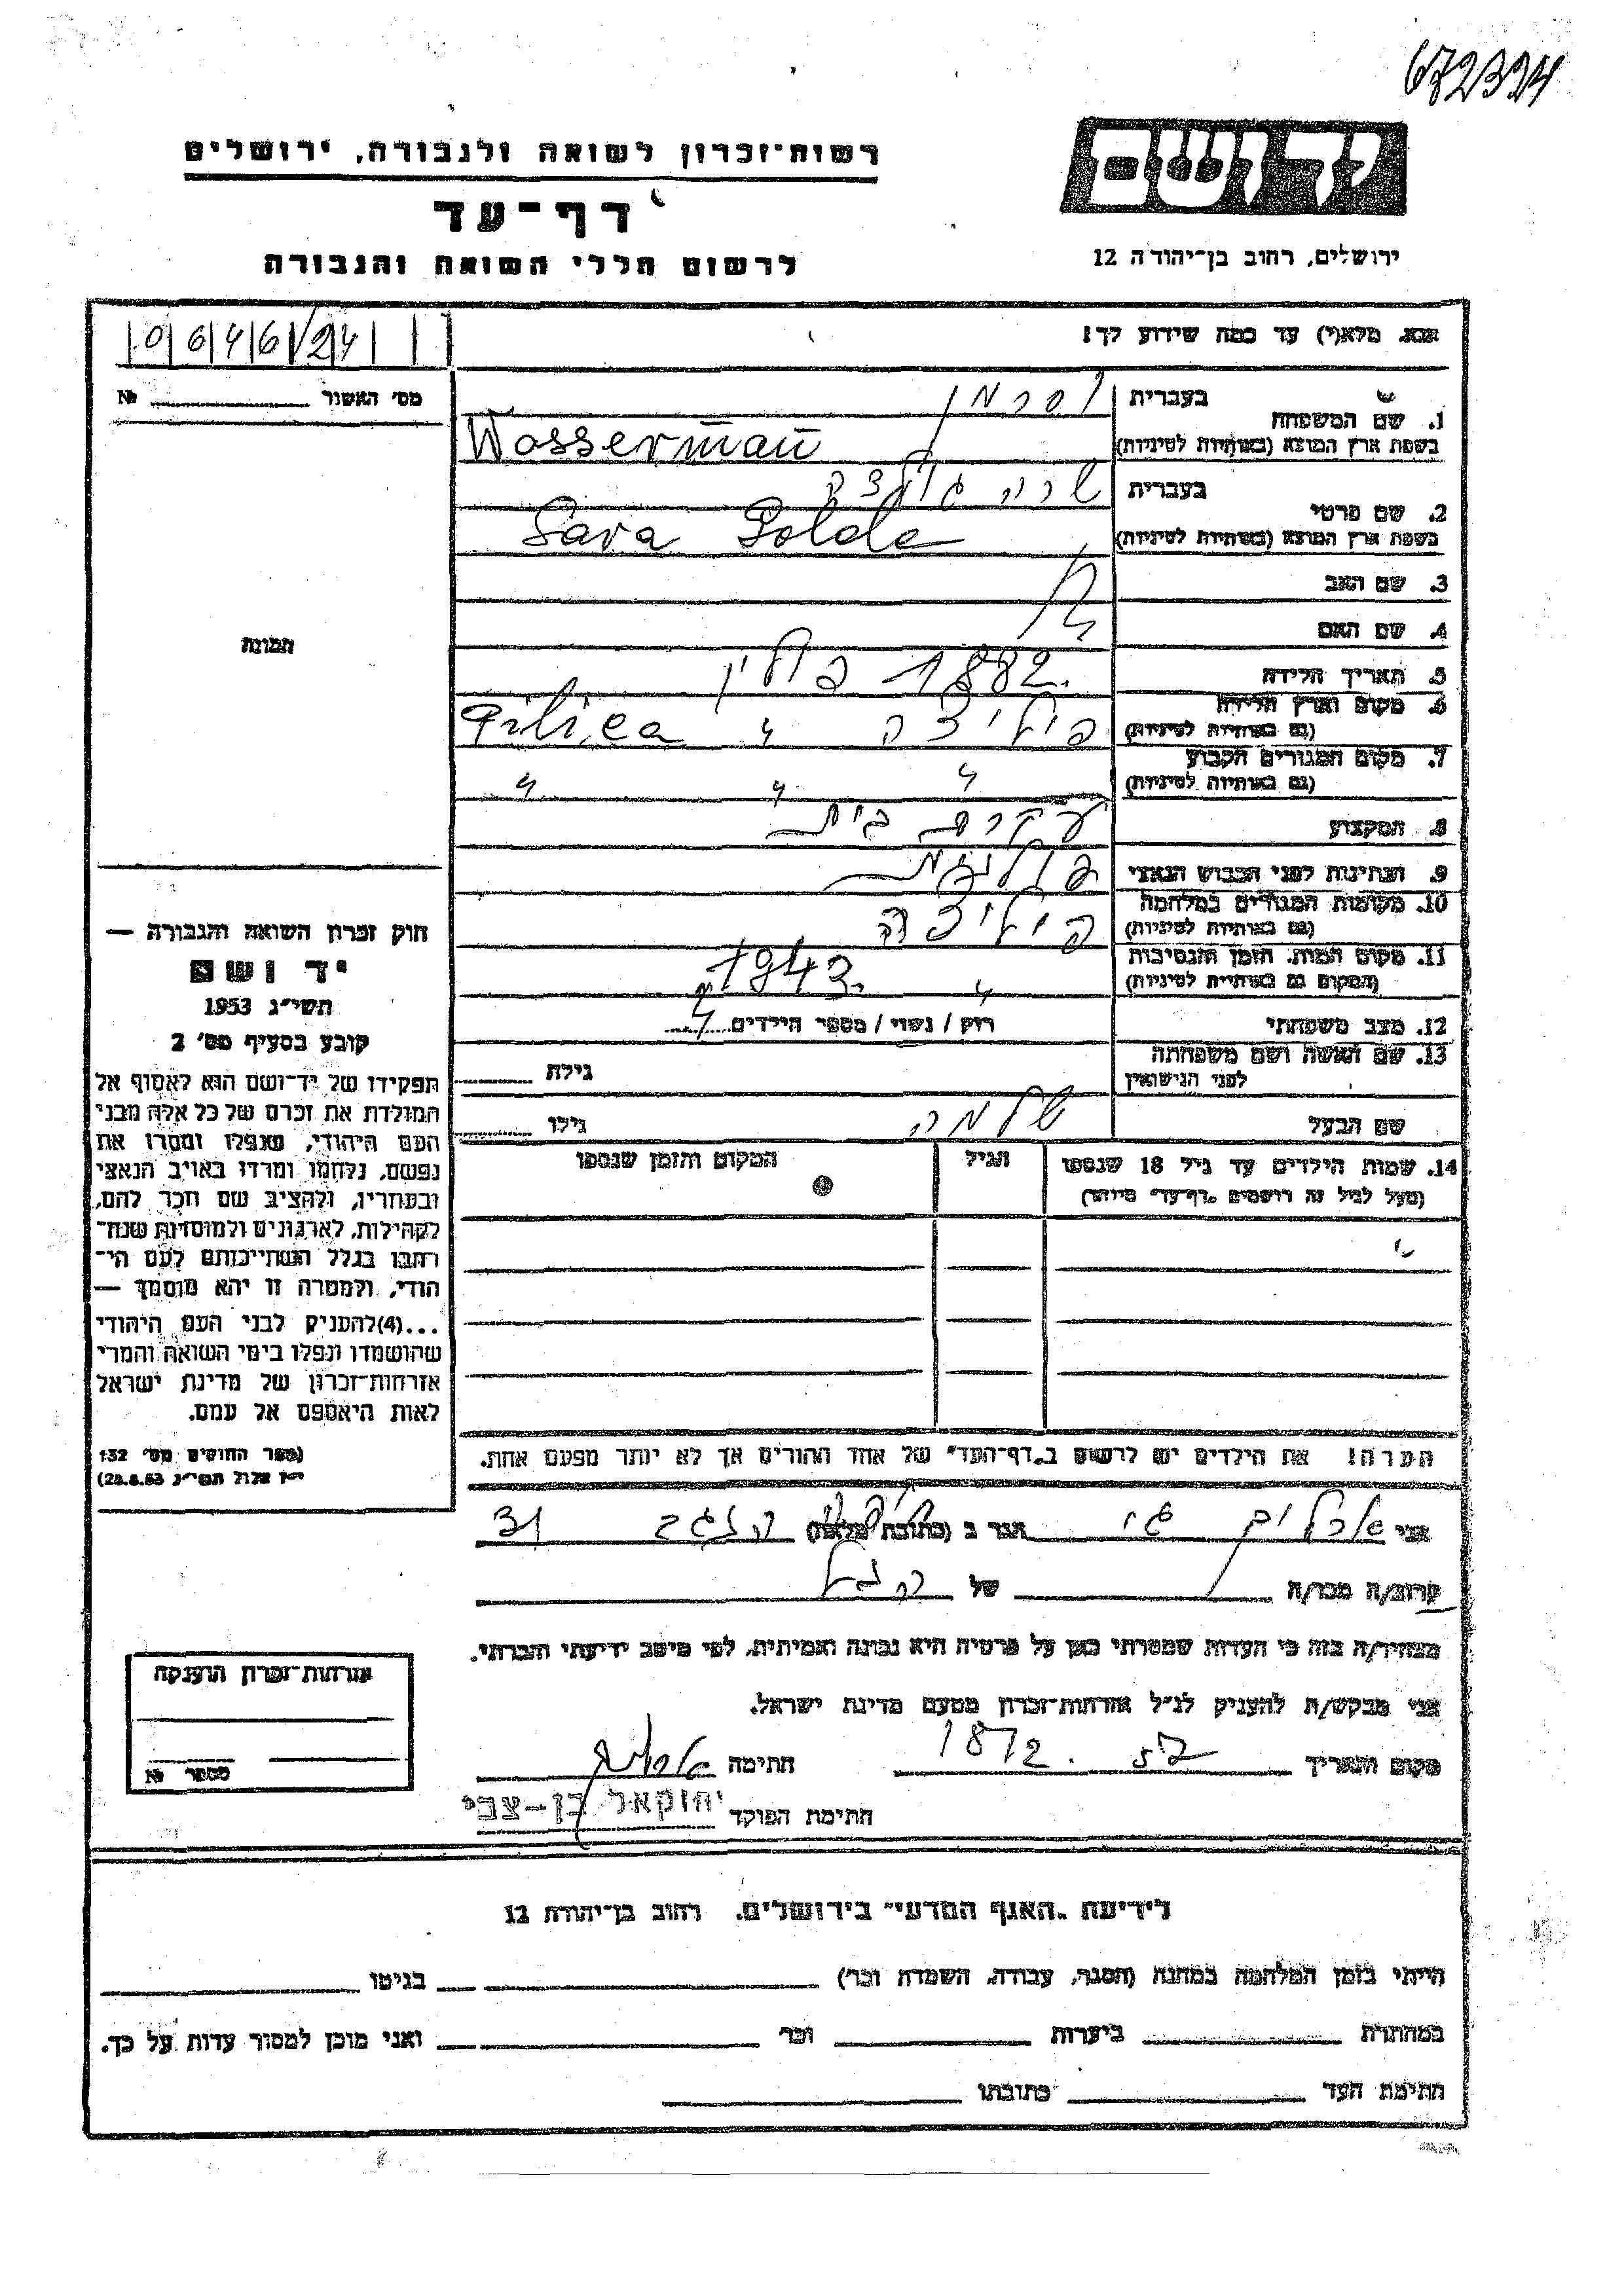 672324
רשות־זכרון לשואה ולגבורה, ירושלים
דף־עד
לרשום חללי השואה והגבורה
יד ושם
ירושלים, רחוב בן־יהודה 12
נא מלא(י) עד כמה שידוע לך!
מס׳ האשור №
1. שם המשפחה
בעברית וסרמן
בשפת ארץ המוצא (באותיות לטיניות) Wasserman
2. שם פרטי
בעברית שרה גולדה
בשפת ארץ המוצא (באותיות לטיניות) Sara Golda
3. שם האב
4. שם האם
5. תאריך הלידה 1882 פולין
6. מקום וארץ הלידה
(גם באותיות לטיניות) פיליצה " Pilica
7. מקום המגורים הקבוע
(גם באותיות לטיניות) " " "
8. המקצוע עקרת בית
9. הנתינות לפני הכבוש הנאצי פולנית
10. מקומות המגורים במלחמה
(גם באותיות לטיניות) פיליצה
11. מקום המות, הזמן והנסיבות
(המקום גם באותיות לטיניות) " 1943.
12. מצב משפחתי רוק / נשוי / מספר הילדים
13. שם האשה ושם משפחתה
לפני הנישואין גילה
שם הבעל שלמה גילו
14. שמות הילדים עד גיל 18 שנספו
(מעל לגיל זה רושמים „דף־עד״ מיוחד)
הגיל
המקום והזמן שנספו
הערה! את הילדים יש לרשום ב„דף־העד״ של אחד ההורים אך לא יותר מפעם אחת.
תמונה
חוק זכרון השואה והגבורה —
יד ושם
תשי״ג 1953
קובע בסעיף מס׳ 2
תפקידו של יד־ושם הוא לאסוף אל
המולדת את זכרם של כל אלה מבני
העם היהודי, שנפלו ומסרו את
נפשם, נלחמו ומרדו באויב הנאצי
ובעוזריו, ולהציב שם וזכר להם,
לקהילות, לארגונים ולמוסדות שנח־
רבו בגלל השתייכותם לעם הי־
הודי, ולמטרה זו יהא מוסמך —
...(4) להעניק לבני העם היהודי
שהושמדו ונפלו בימי השואה והמרי
אזרחות־זכרון של מדינת ישראל
לאות היאספם אל עמם.
(ספר החוקים מס׳ 132
י״ז אלול תשי״ג 28.8.53)
אני הגר ב (כתובת מלאה) 31
קרוב/ה מכר/ה של
מצהיר/ה בזה כי העדות שמסרתי כאן על פרטיה היא נכונה ואמיתית, לפי מיטב ידיעתי והכרתי.
אני מבקש/ת להעניק לנ״ל אזרחות־זכרון מטעם מדינת ישראל.
מקום ותאריך חתימה
חתימת הפוקד יחזקאל בן-צבי
אזרחות־זכרון הוענקה
מספר №
לידיעת „האגף המדעי״ בירושלים, רחוב בן־יהודה 12
הייתי בזמן המלחמה במחנה (הסגר, עבודה, השמדה וכו׳) בגיטו
במחתרת ביערות וכו׳ ואני מוכן למסור עדות על כך.
חתימת העד כתובתו